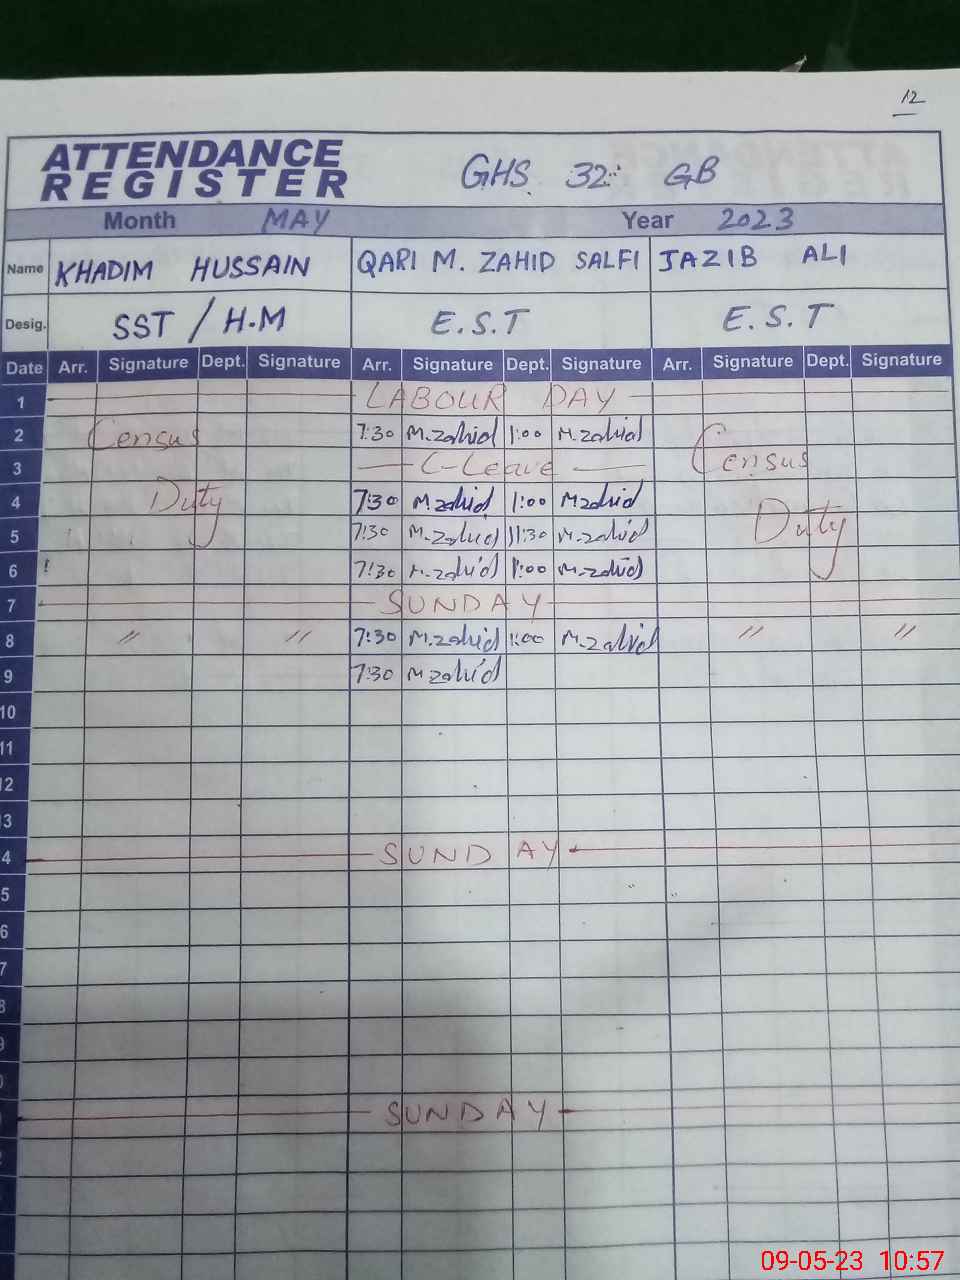 12
ATTENDANCE
REGISTER
GHS 32 GB
Month MAY Year 2023
Name KHADIM HUSSAIN QARI M. ZAHID SALFI JAZIB ALI
Desig. SST / H.M E.S.T E.S.T
Date Arr. Signature Dept. Signature Arr. Signature Dept. Signature Arr. Signature Dept. Signature
1 LABOUR DAY
2 Census 7:30 M.zahid 1:00 M.zahid Census
3 C-Leave
4 Duty 7:30 M.zahid 1:00 M.zahid Duty
5 7:30 M.zahid 11:30 M.zahid
6 7:30 M.zahid 1:00 M.zahid
7 SUNDAY
8 " " 7:30 M.zahid 1:00 M.zahid " "
9 7:30 M.zahid
10
11
12
13
4 SUNDAY
5
6
7
8
9
0
SUNDAY
09-05-23 10:57